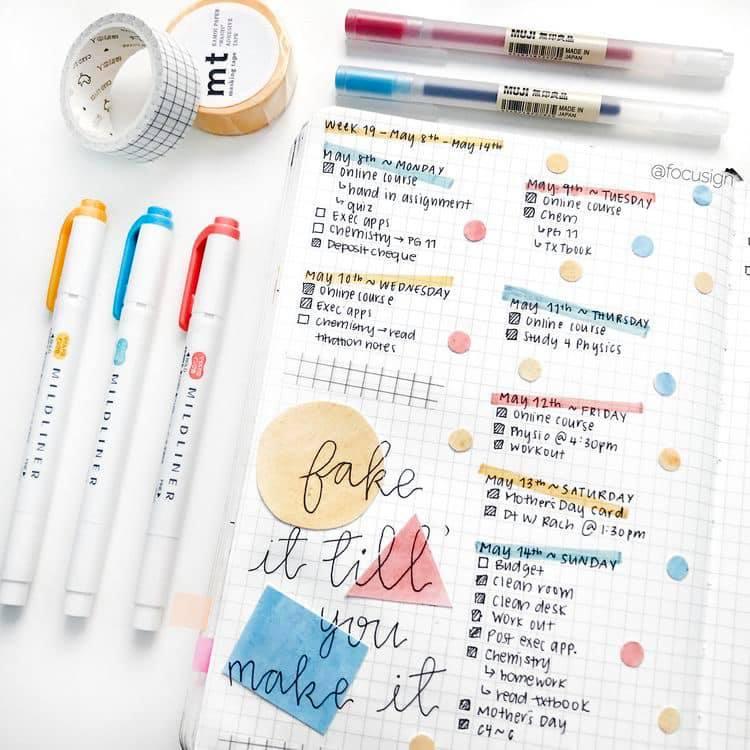 mt
masking tape
KAMOI PAPER
"WASHI"
ADHESIVE
TAPE
MUJI 無印良品
MADE IN
JAPAN
MUJI 無印良品
MADE IN
JAPAN
@focusign
MILDLINER
MILDLINER
MILDLINER
WEEK 19 - MAY 8th - MAY 14th
May 8th ~ MONDAY
Online course
↳ hand in assignment
↳ quiz
Exec apps
Chemistry → PG 11
Deposit cheque
May 10th ~ WEDNESDAY
Online course
Exec apps
Chemistry → read
titration notes
fake
it till'
you
make it
May 9th ~ TUESDAY
Online course
Chem
↳ PG 11
↳ TXTbook
May 11th ~ THURSDAY
Online course
Study 4 Physics
May 12th ~ FRIDAY
Online course
Physio @ 4:30pm
Workout
May 13th ~ SATURDAY
Mother's Day card
DT W/ Rach @ 1:30pm
May 14th ~ SUNDAY
Budget
Clean room
Clean desk
Work out
Post exec app.
Chemistry
↳ homework
↳ read txtbook
Mother's Day
C4~6